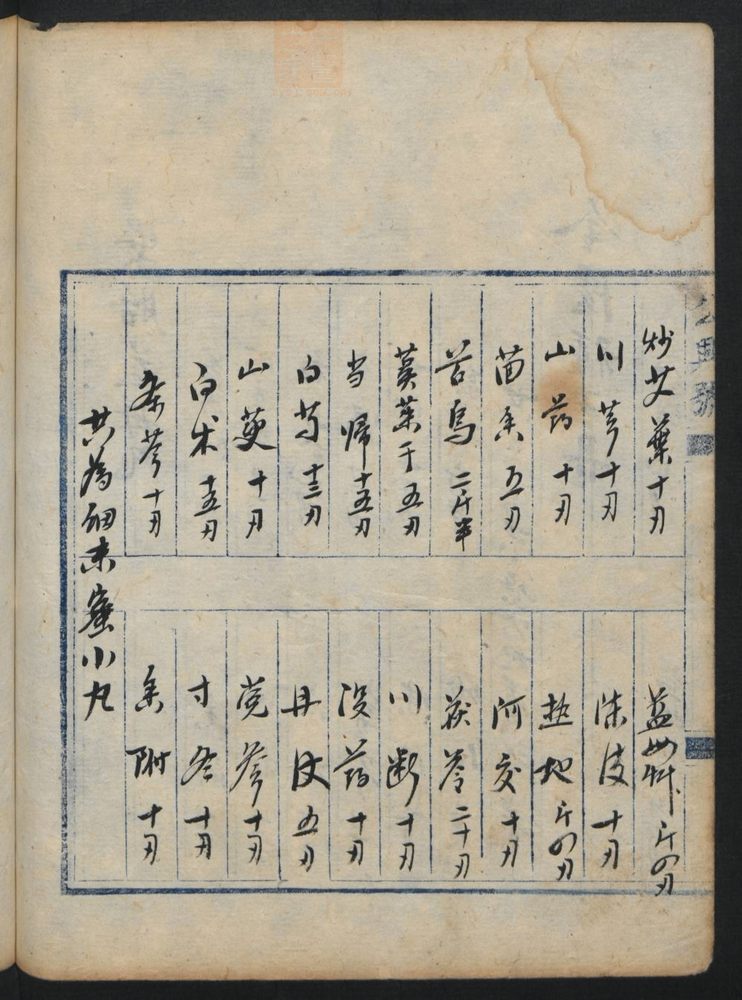 炒艾葉十刄
川芎十刄
山药十刄
茴香五刄
首烏二斤半
萸菜于五刄
当帰十五刄
白芍十三刄
山萸十刄
白术十五刄
条芩十刄
益母艸斤四刄
陈皮十刄
熟地斤四刄
阿交十刄
茯苓二十刄
川断十刄
没药十刄
丹皮五刄
党参十刄
寸冬十刄
香附十刄
共為細末蜜小丸